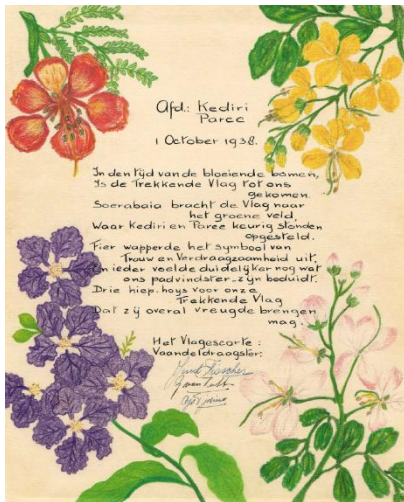 Afd.: Kediri
Paree
1 October 1938.
In den tijd van de bloeiende bomen,
Is de Trekkende Vlag tot ons
gekomen.
Soerabaia bracht de Vlag naar
het groene veld,
Waar Kediri en Paree keurig stonden
opgesteld.
Fier wapperde het symbool van
Trouw en Verdraagzaamheid uit,
En ieder voelde duidelijker nog wat
ons padvindster-zijn beduidt.
Drie hiep. hoys voor onze
Trekkende Vlag
Dat zij overal vreugde brengen
mag.
Het Vlagescorte:
Vaandeldraagster: